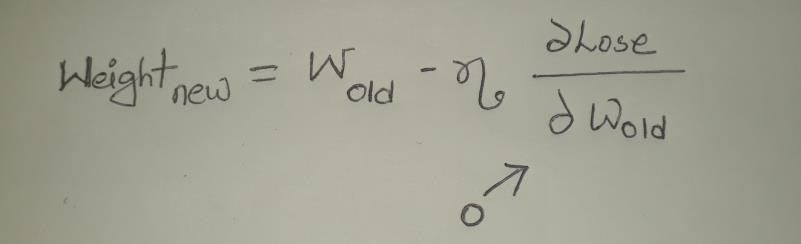 Weight_new = W_old - η ∂Lose / ∂W_old
0 ↗